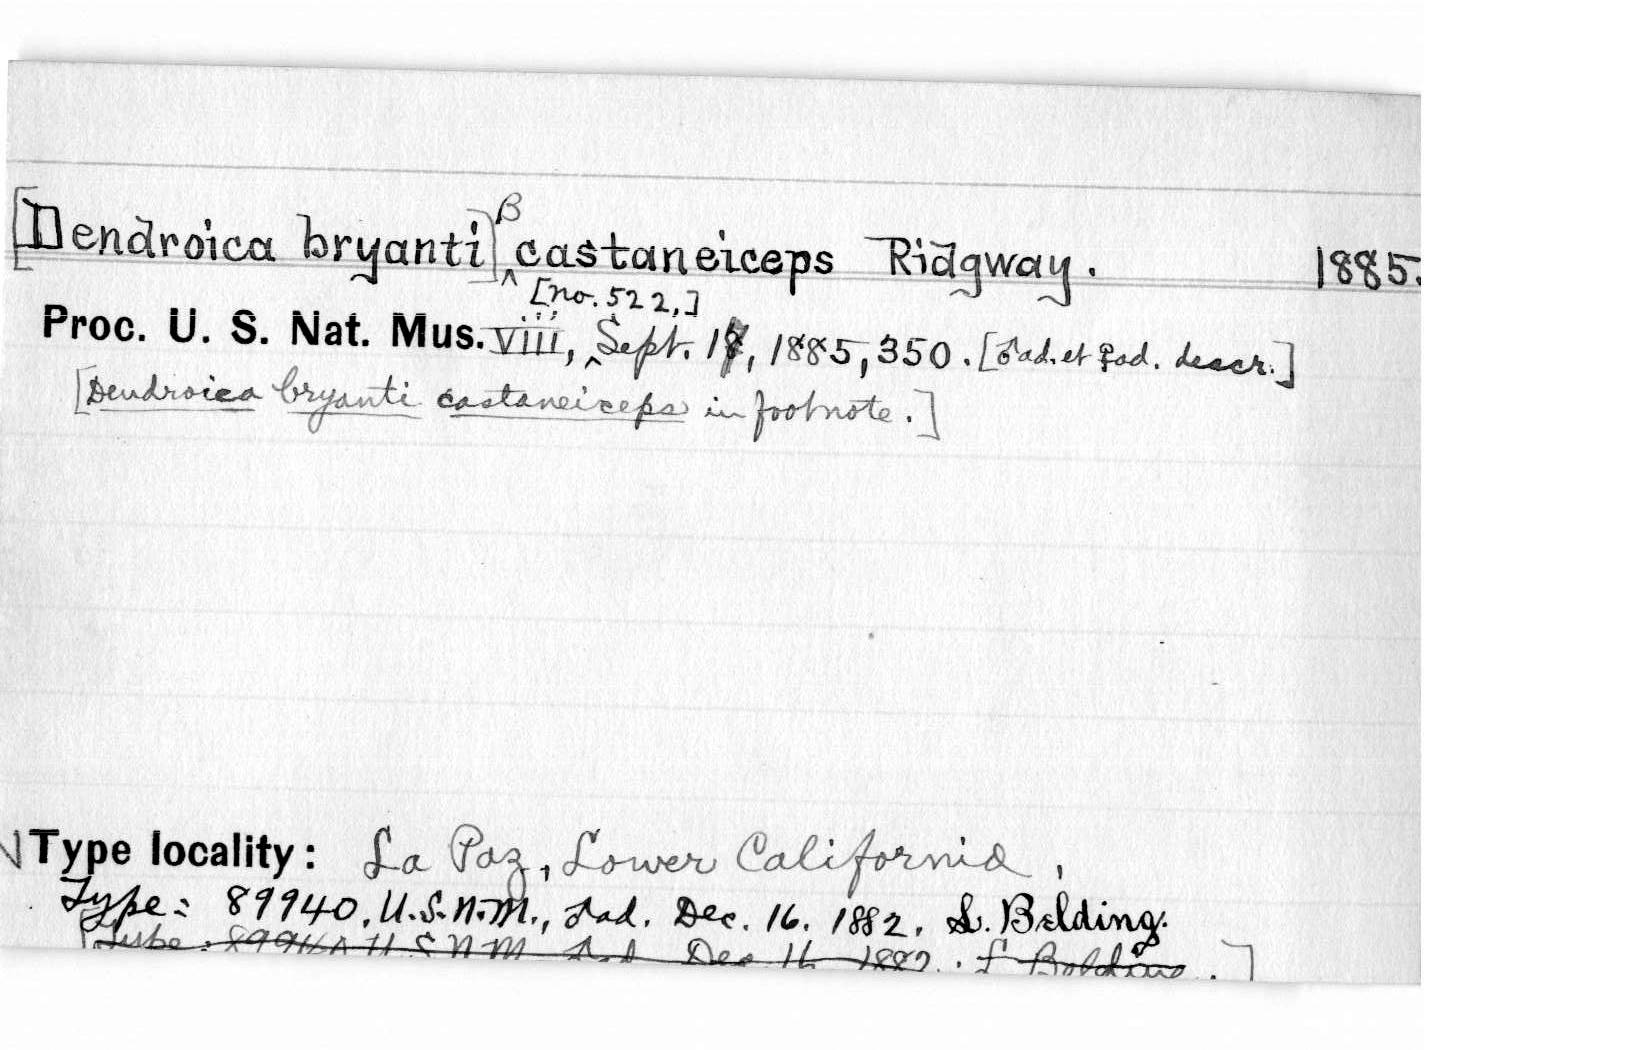 [Dendroica bryanti] β castaneiceps Ridgway. 1885.
[no. 522,]
Proc. U. S. Nat. Mus. viii, Sept. 1885, 350. [♂ad. et ♀ad. descr.]
[Dendroica bryanti castaneiceps in footnote.]
Type locality: La Paz, Lower California,
Type: 89940, U.S.N.M., ♂ad. Dec. 16, 1882, L. Belding.
[Type: 89940 U S N M ♂ad Dec. 16 1882. L Belding.]